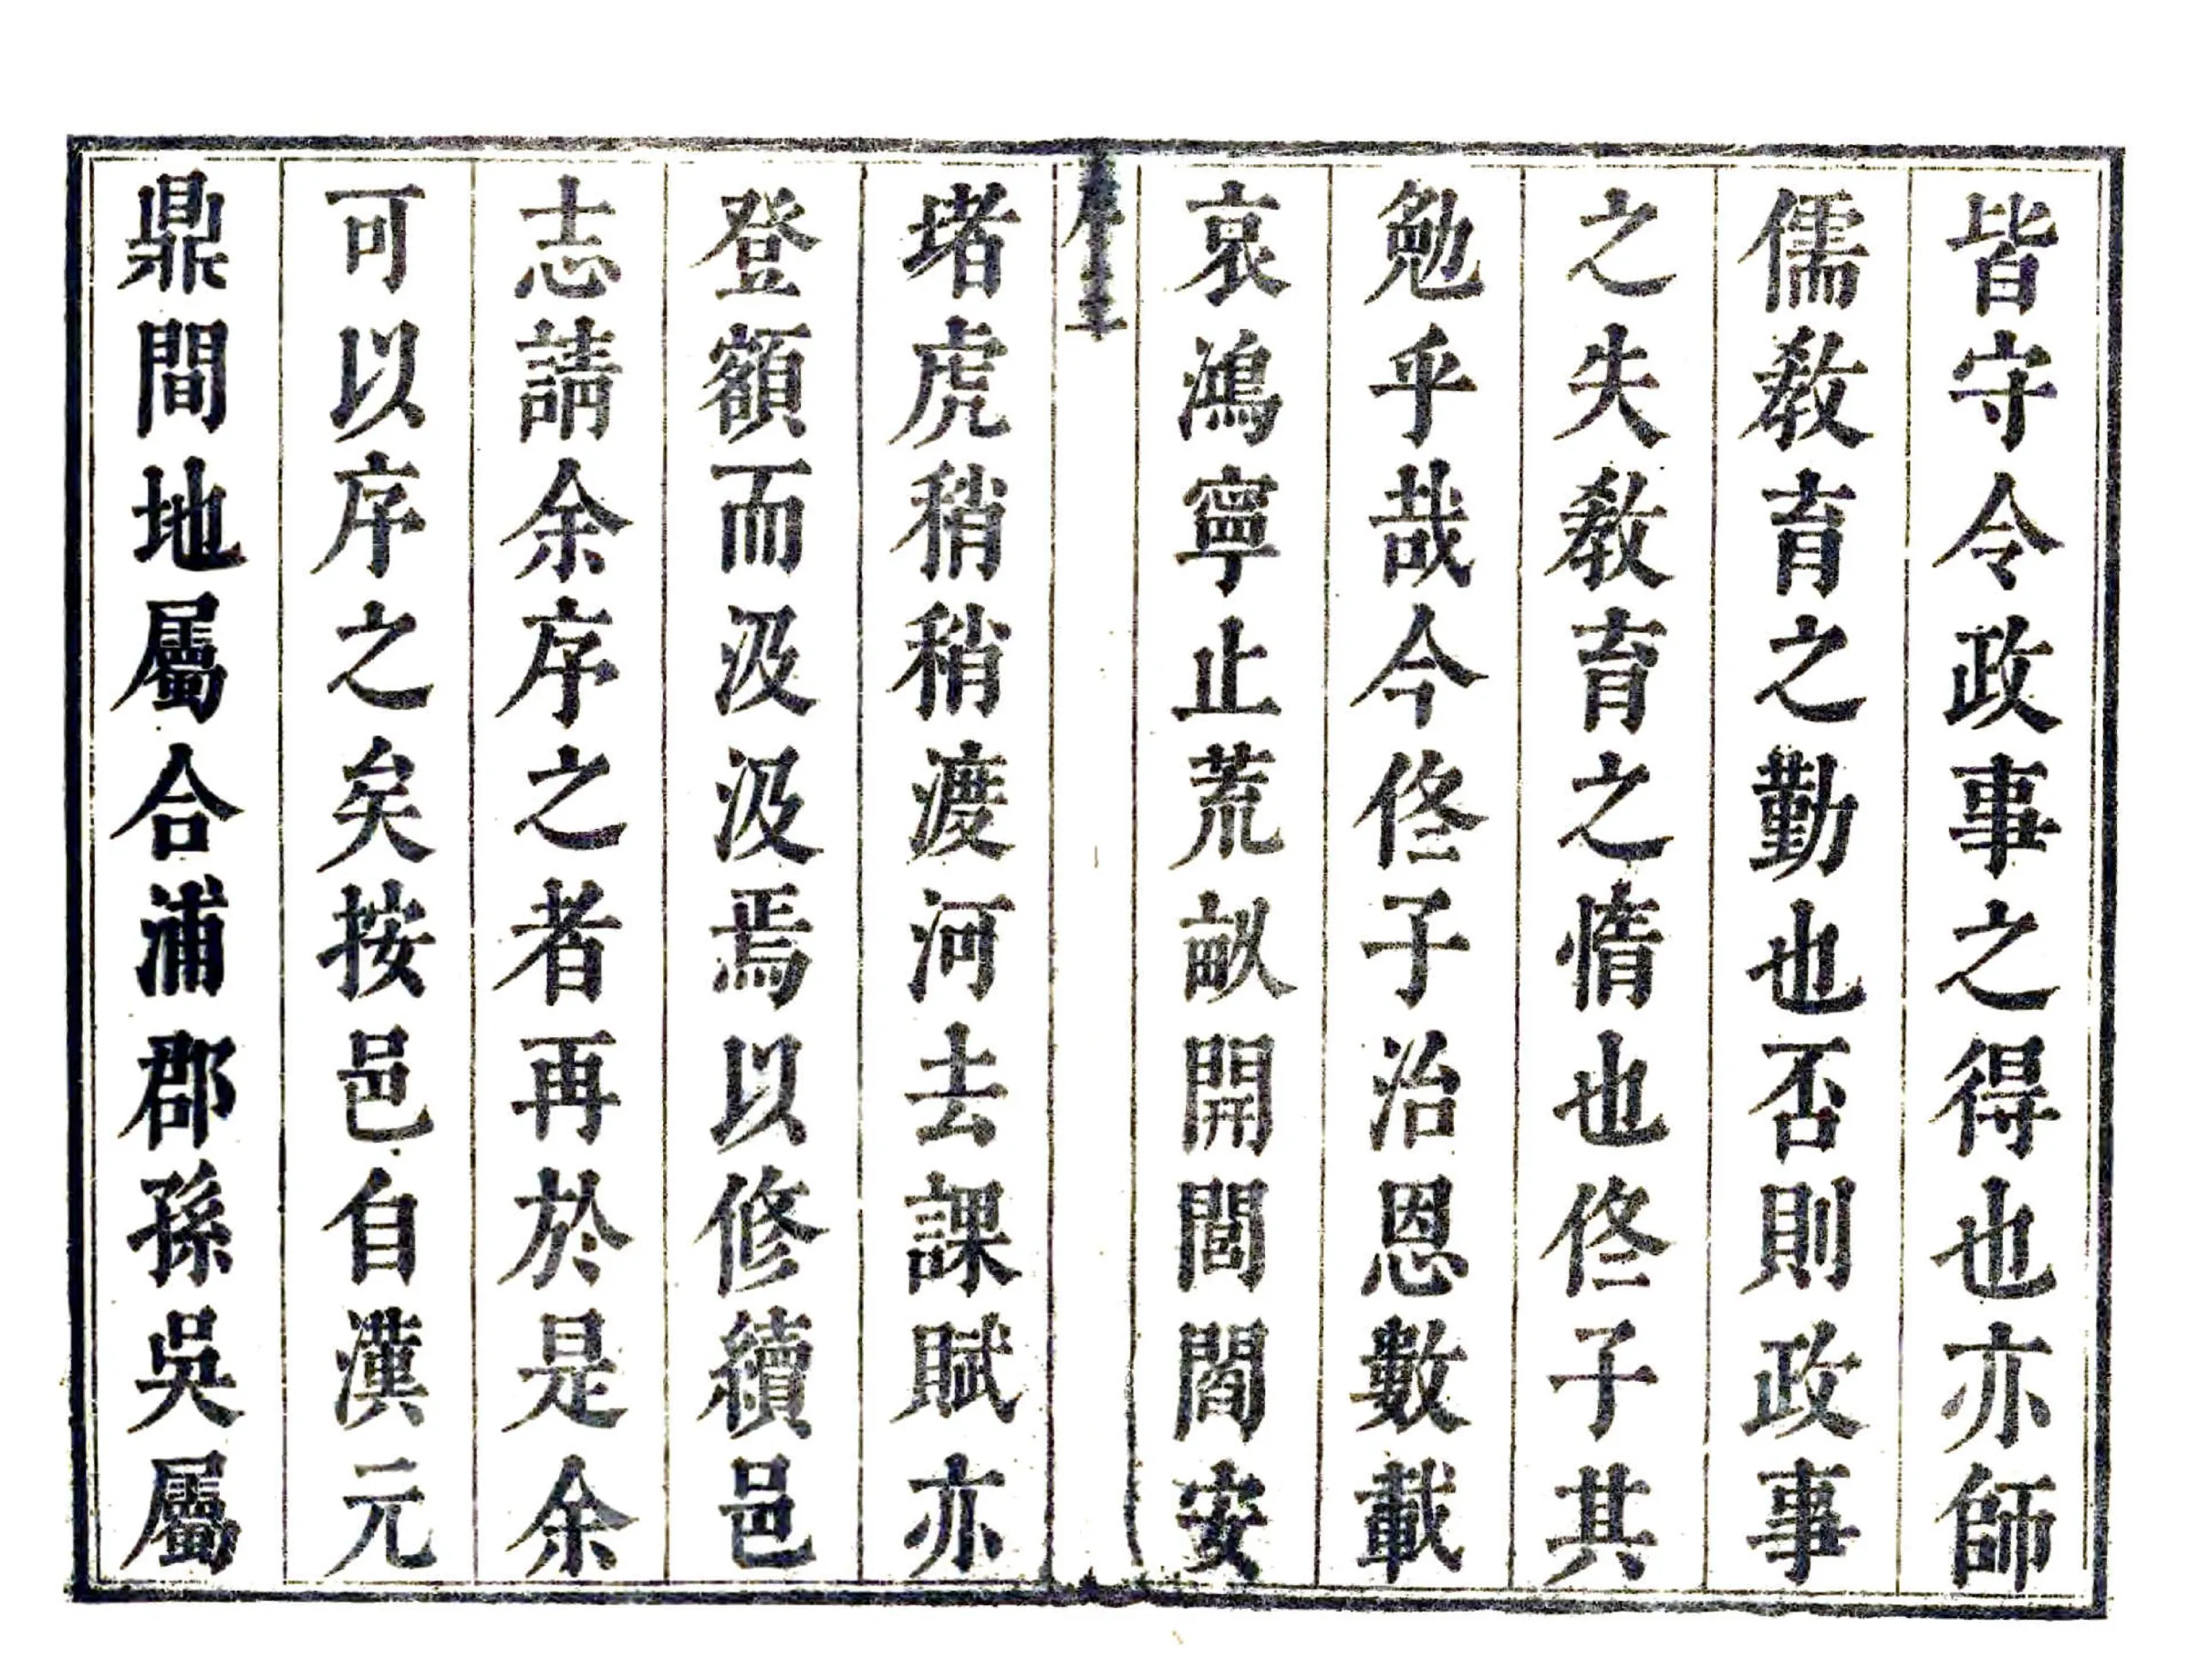 皆守令政事之得也亦師
儒教育之勤也否則政事
之失教育之惰也佟子其
勉乎哉今佟子治恩數載
哀鴻寧止荒畝開閭閻安
堵虎稍稍渡河去課賦亦
登額而汲汲焉以修續邑
志請余序之者再於是余
可以序之矣按邑自漢元
鼎間地屬合浦郡孫吳屬